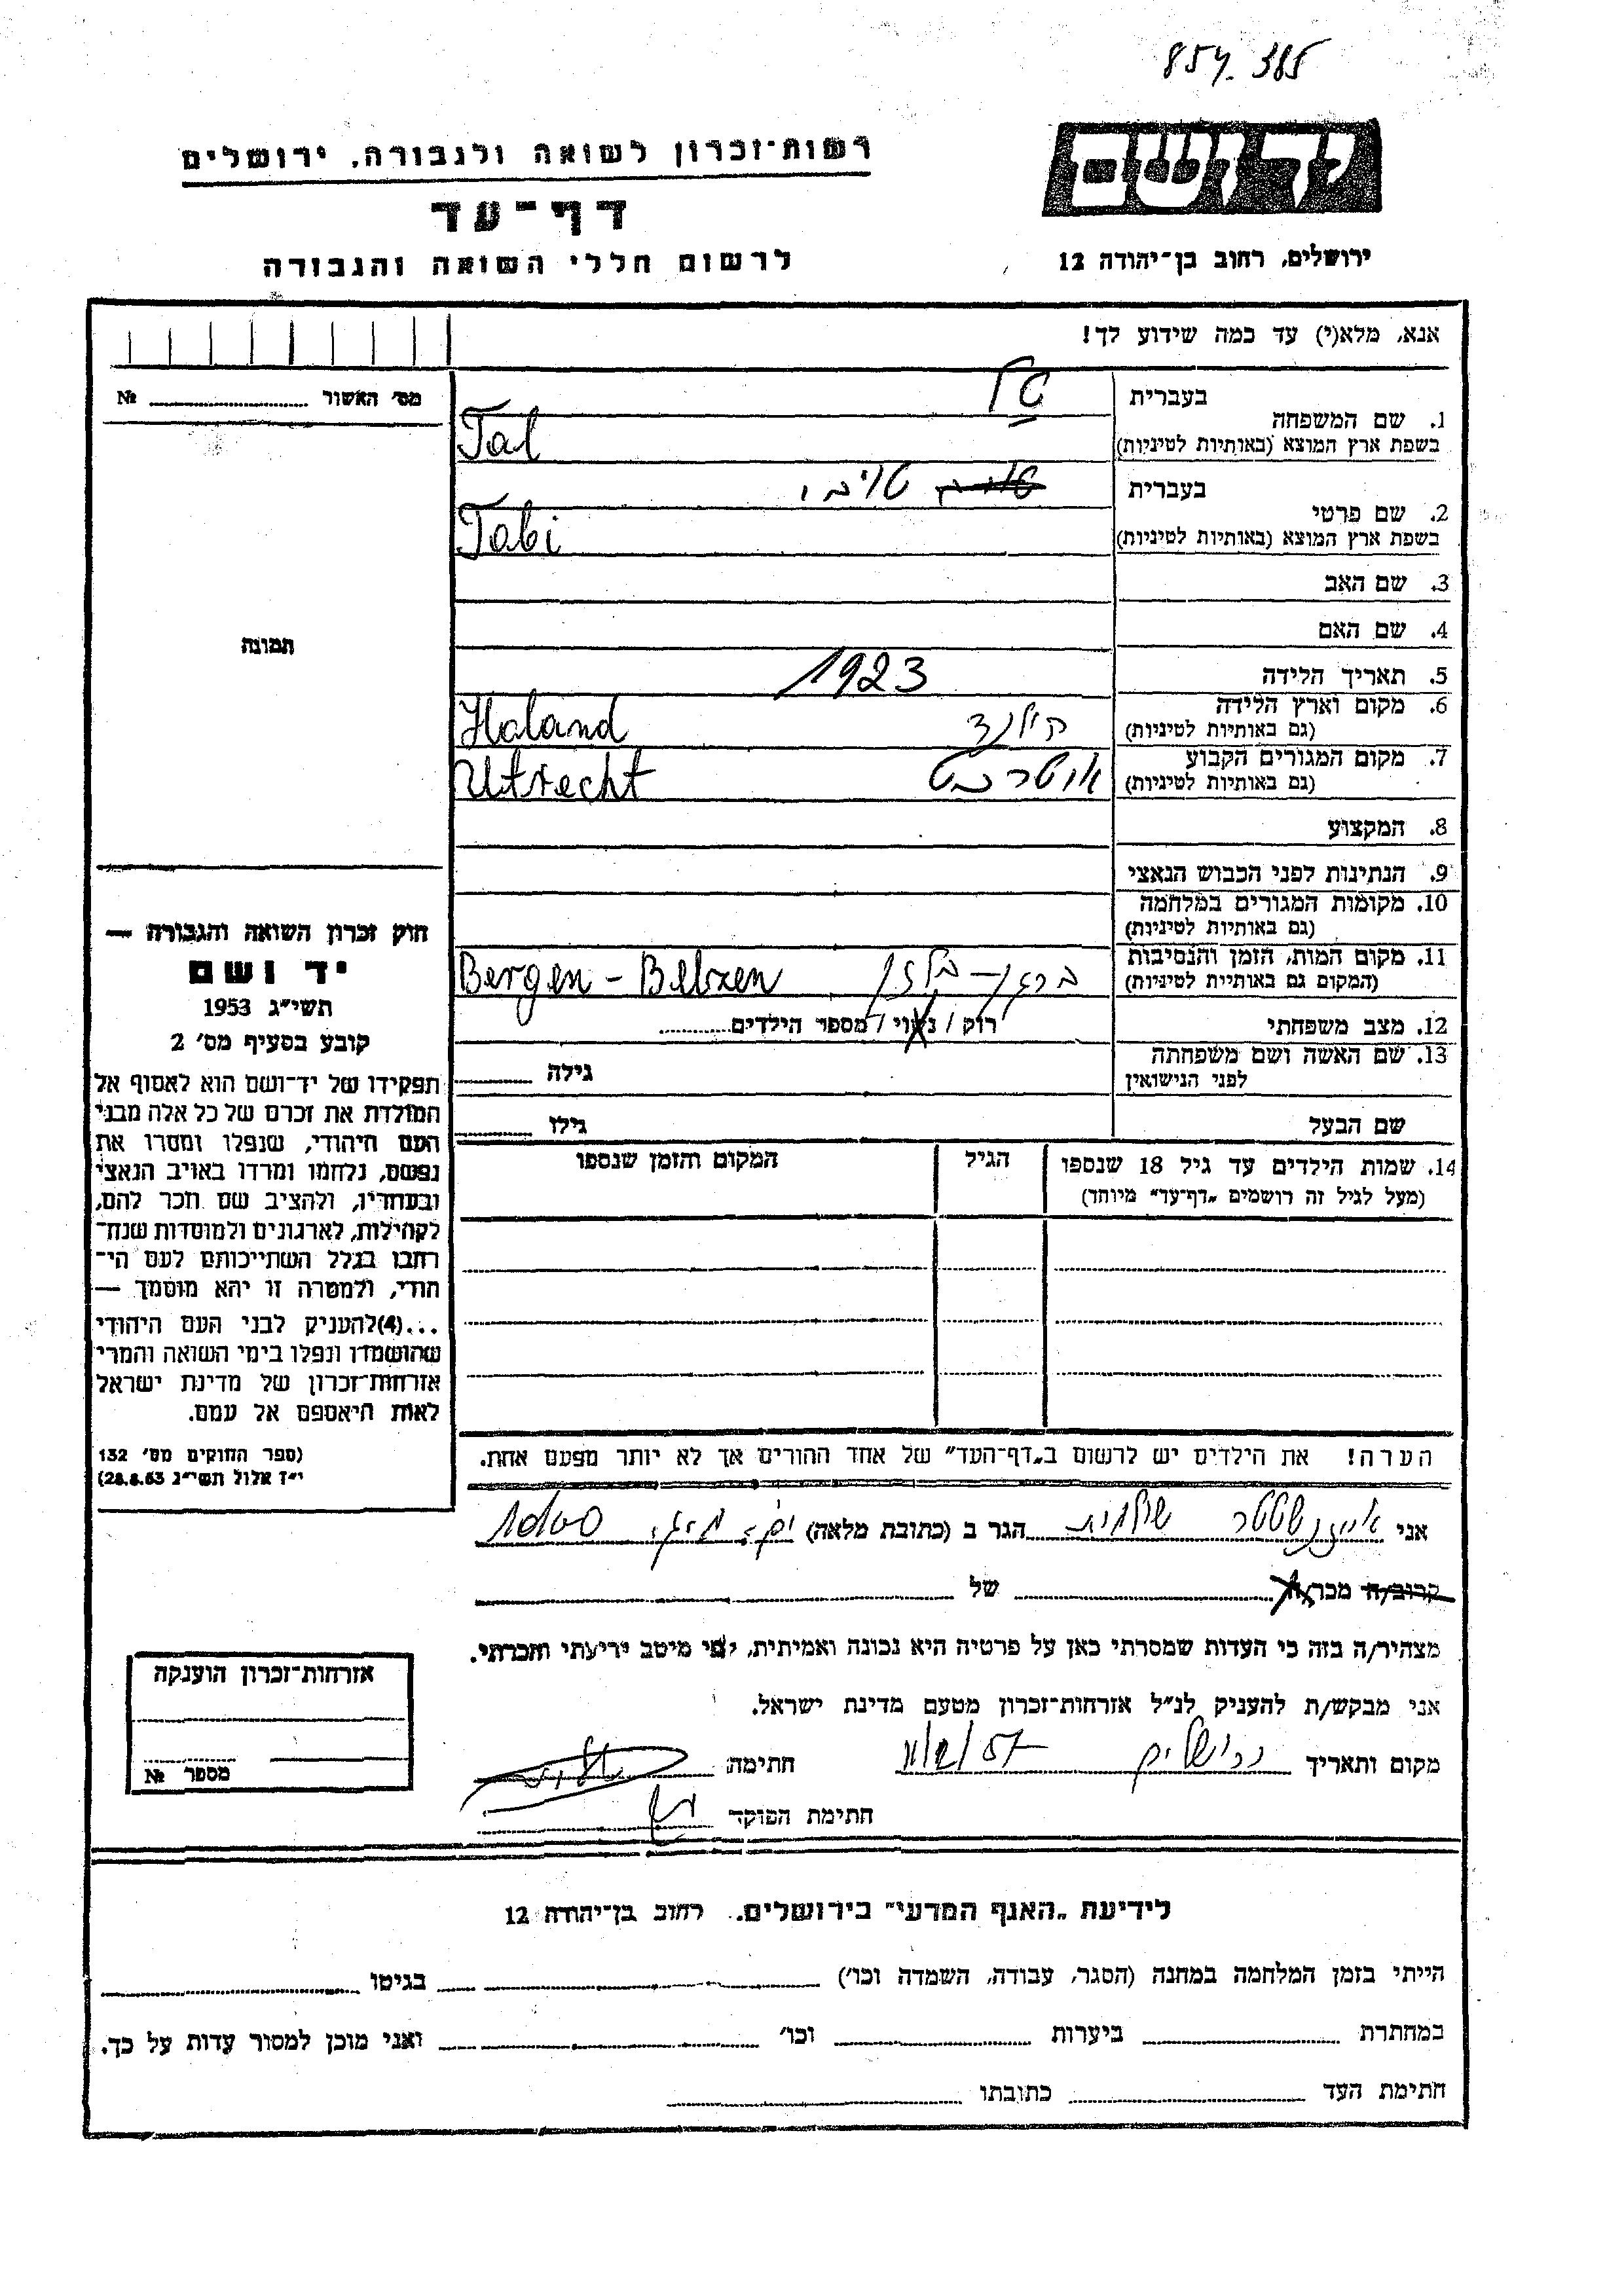 854.365
רשות־זכרון לשואה ולגבורה, ירושלים
דף־עד
לרשום חללי השואה והגבורה
יד ושם
ירושלים, רחוב בן־יהודה 12
אנא, מלא(י) עד כמה שידוע לך!
מס׳ האשור № 
תמונה
בעברית טל
1. שם המשפחה
בשפת ארץ המוצא (באותיות לטיניות) Tal
בעברית טובי
2. שם פרטי
בשפת ארץ המוצא (באותיות לטיניות) Tobi
3. שם האב
4. שם האם
5. תאריך הלידה 1923
6. מקום וארץ הלידה
(גם באותיות לטיניות) הולנד Holand
7. מקום המגורים הקבוע
(גם באותיות לטיניות) אוטרכט Utrecht
8. המקצוע
9. הנתינות לפני הכבוש הנאצי
10. מקומות המגורים במלחמה
(גם באותיות לטיניות)
11. מקום המות, הזמן והנסיבות
(המקום גם באותיות לטיניות) ברגן-בלזן Bergen-Belzen
12. מצב משפחתי רוק / נשוי / מספר הילדים
13. שם האשה ושם משפחתה
לפני הנישואין גילה
שם הבעל גילו
14. שמות הילדים עד גיל 18 שנספו הגיל המקום והזמן שנספו
(מעל לגיל זה רושמים „דף־עד” מיוחד)
חוק זכרון השואה והגבורה —
יד ושם
תשי״ג 1953
קובע בסעיף מס׳ 2
תפקידו של יד־ושם הוא לאסוף אל
המולדת את זכרם של כל אלה מבני
העם היהודי, שנפלו ומסרו את
נפשם, נלחמו ומרדו באויב הנאצי
ובעוזריו, ולהציב שם וזכר להם,
לקהילות, לארגונים ולמוסדות שנח־
רבו בגלל השתייכותם לעם הי־
הודי, ולמטרה זו יהא מוסמך —
...(4)להעניק לבני העם היהודי
שהושמדו ונפלו בימי השואה והמרי
אזרחות־זכרון של מדינת ישראל
לאות היאספם אל עמם.
(ספר החוקים מס׳ 132
י״ז אלול תשי״ג 28.8.53)
הערה! את הילדים יש לרשום ב„דף־העד” של אחד ההורים אך לא יותר מפעם אחת.
אני אייזנשטטר שולמית הגר ב (כתובת מלאה)
קרוב/ה מכר/ה של
מצהיר/ה בזה כי העדות שמסרתי כאן על פרטיה היא נכונה ואמיתית, לפי מיטב ידיעתי והכרתי.
אני מבקש/ת להעניק לנ״ל אזרחות־זכרון מטעם מדינת ישראל.
מקום ותאריך ירושלים 11/2/57 חתימה
חתימת הפוקד
אזרחות־זכרון הוענקה
מספר №
לידיעת „האגף המדעי” בירושלים. רחוב בן־יהודה 12
הייתי בזמן המלחמה במחנה (הסגר, עבודה, השמדה וכו׳) בגיטו
במחתרת ביערות וכו׳ ואני מוכן למסור עדות על כך.
חתימת העד כתובתו